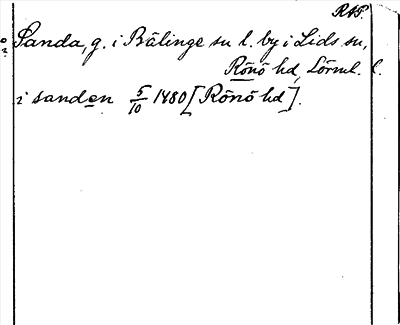 RAP.
Sanda, g. i Bälinge sn l. by i Lids sn,
Rönö hd, Sörml. l.
i sanden 5/10 1480 [Rönö hd].